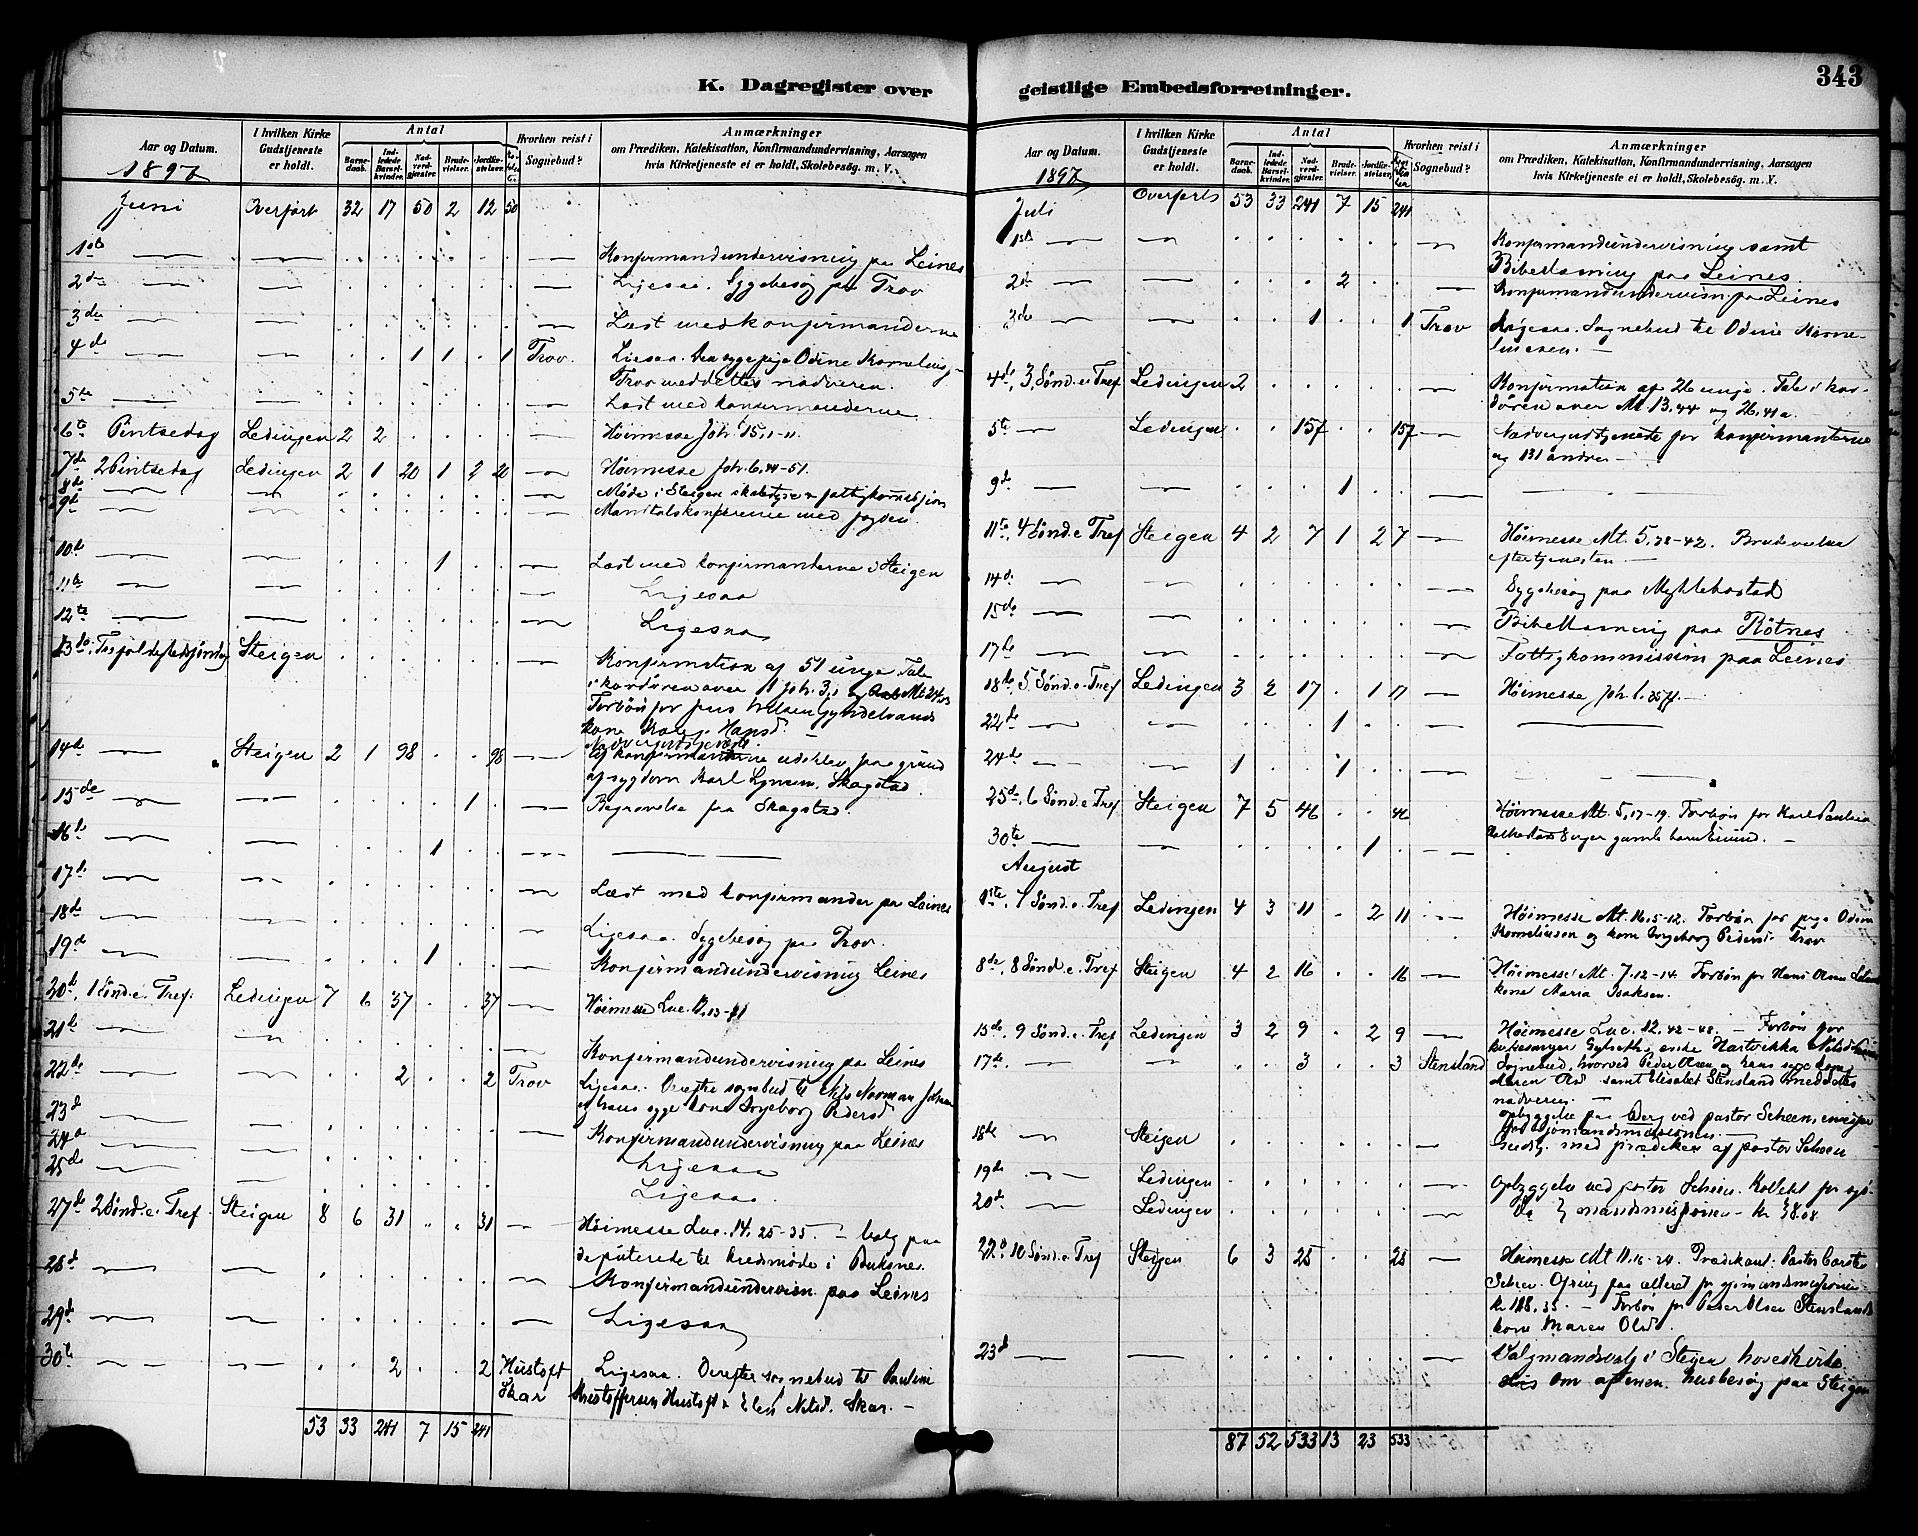 K. Dagregister over
Aar og Datum.
1897
I hvilken Kirke Gudstjeneste er holdt.
Antal
Barnedaab.
Indledede Barselkvinder.
Nadverdgjester.
Brudevielser.
Jordfæstelser.
Hvorhen reist i Sognebud?
Anmærkninger
om Prædiken, Katekisation, Konfirmandundervisning, Aarsagen
hvis Kirketjeneste ei er holdt, Skolebesög. m. V.
Juni Overført 32 17 50 2 12 50
1ste Konfirmandundervisning paa Leines
2den Ligesaa. Sygebesøg paa Trov
3die Læst med konfirmanderne
4de 1 1 1 Trov. Ligesaa. Odine Kornelius-
Trov meddeltes nadveren.
5te Læst med konfirmanderne
6te Pintsedag Ledingen 2 2 Høimesse Joh. 15, 1-11.
7de 2 Pintsedag Ledingen 2 1 20 1 2 20 Høimesse Joh. 6, 44-51.
8de Møde i Steigen
9de Manntalskonference med fogden.
10de 1 Læst med konfirmanterne i Steigen
11te Ligesaa
12te Ligesaa
13de Steigen Konfirmation af 51 unge. Tale
i kordøren over 1 Joh. 3, 1
Forbøn for
kone
14de Steigen 2 1 98 98 Nadvergudstjeneste.
konfirmanterne udeblev paa grund
af sygdom Karl Skagstad.
15de 1 Begravelse paa Skagstad.
16de 1
17de Læst med konfirmander paa Leines
18de Ligesaa. Sygebesøg paa Trov.
19de 1 Konfirmandundervisning Leines
20de, 1 Sønd. e. Tref. Ledingen 7 6 37 37 Høimesse Luc.
21de Konfirmandundervisning paa Leines
22de 2 2 Trov Ligesaa. Derefter sognebud til Nils Norman
og hans syge kone Ingeborg Pedersd.
23de Konfirmandundervisning paa Leines
24de Ligesaa
25de Ligesaa.
27de 2 Sønd. e. Tref. Steigen 8 6 31 31 Høimesse Luc. 14, 25-35. – Valg paa
deputerede til kredsmøde i Buksnes.
28de Konfirmandundervisn. paa Leines
29de Ligesaa
30te 2 2 Hustoft Ligesaa. Derefter sognebud til Pauline
Skar Kristoffersen Hustoft & Elen Nilsd. Skar. –
53 33 241 7 15 241
geistlige Embedsforretninger.
343
Aar og Datum.
1897
I hvilken Kirke Gudstjeneste er holdt.
Antal
Barnedaab.
Indledede Barselkvinder.
Nadverdgjester.
Brudevielser.
Jordfæstelser.
Hvorhen reist i Sognebud?
Anmærkninger
om Prædiken, Katekisation, Konfirmandundervisning, Aarsagen
hvis Kirketjeneste ei er holdt, Skolebesög. m. V.
Juli Overførts 53 33 241 7 15 241
1ste Konfirmandundervisning samt
Bibellæsning paa Leines
2den 2 Konfirmandundervisn. paa Leines
3die 1 1 Trov Ligesaa. Sognebud til Odine Korne-
liussen. –
4de, 3 Sønd. e. Tref Ledingen 2 Konfirmation af 26 unge. Tale i kor-
døren over Mt. 13, 44 og 26, 41a.
5te Ledingen 157 157 Nadvergudstjeneste for konfirmanterne
og 131 andre –
9de 1
11te, 4 Sønd. e Tref Steigen 4 2 7 1 2 7 Høimesse Mt. 5, 38-42. Brudevielse
efter tjenesten. –
14de Sygebesøg paa Myklebostad
15de Bibellæsning paa Røtnes
17de Fattigkommission paa Leines
18de, 5 Sønd. e. Tref Ledingen 3 2 17 1 17 Høimesse Joh. 1, 35ff. –
22de 1
24de 1 1
25de, 6 Sønd. e Tref Steigen 7 5 46 46 Høimesse Mt. 5, 17-19. Forbøn for Karl
gamle barn –
30te 1
August
1ste, 7 Sønd. e. Tref Ledingen 4 3 11 2 11 Høimesse Mt. 16, 5-12. Forbøn for Odine
Korneliussen og kone Ingeborg Pedersd. Trov
8de, 8 Sønd. e. Tref Steigen 4 2 16 16 Høimesse Mt. 7, 12-14. Forbøn for Hans Olsen
kone Maria Isaksen.
15de, 9 Sønd. e Tref Ledingen 3 2 9 2 9 Høimesse Luc. 12, 42-48. – Forbøn for
kirkesanger enke Hartvikka Nilsd
17de 3 3 Stensland Sognebud, hvorved Peder Olsen og hans syge kone
Maren Olsd. samt Elisabet Stensland meddeltes
nadveren. –
18de Steigen Opbyggelse paa ved pastor Scheen,
Gudstj. med prædiken af pastor Scheen
19de Ledingen Opbyggelse ved pastor Scheen. Kollekt for sjø-
20de Ledingen Do } mandsmissionen – kr 38.08
22de 10 Sønd. e Tref Steigen 6 3 25 28 Høimesse Mt 11, 16-24. Prædikant: Pastor Carsten
Scheen. Ofring paa alteret for sjømandsmissionen
kr 188,35. – Forbøn for Peder Olsen Stensland
kone Maren Olsd.
23de Valgmandsvalg i Steigen hovedkirke
om aftenen. husbesøg paa Steigen
87 52 533 13 23 533